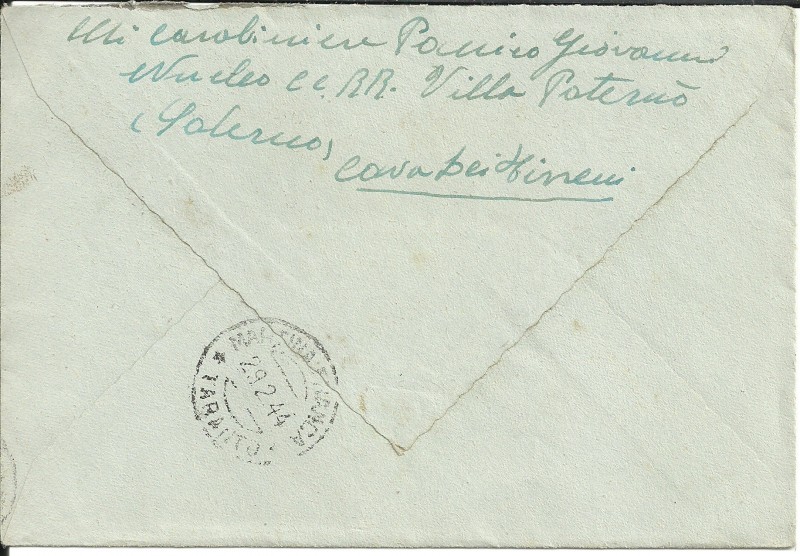 Mi Carabiniere Panico Giovanni
Nucleo CC.RR. Villa Paternò
(Salerno)
Cava dei Tirreni
* MARTINA FRANCA *
29.2.44
(TARANTO)